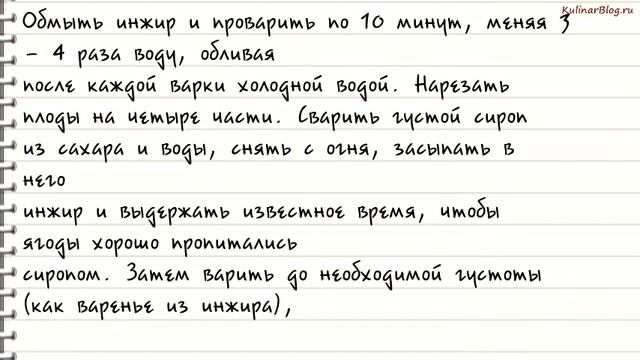 KulinarBlog.ru
Обмыть инжир и проварить по 10 минут, меняя 3
- 4 раза воду, обливая
после каждой варки холодной водой. Нарезать
плоды на четыре части. Сварить густой сироп
из сахара и воды, снять с огня, засыпать в
него
инжир и выдержать известное время, чтобы
ягоды хорошо пропитались
сиропом. Затем варить до необходимой густоты
(как варенье из инжира),